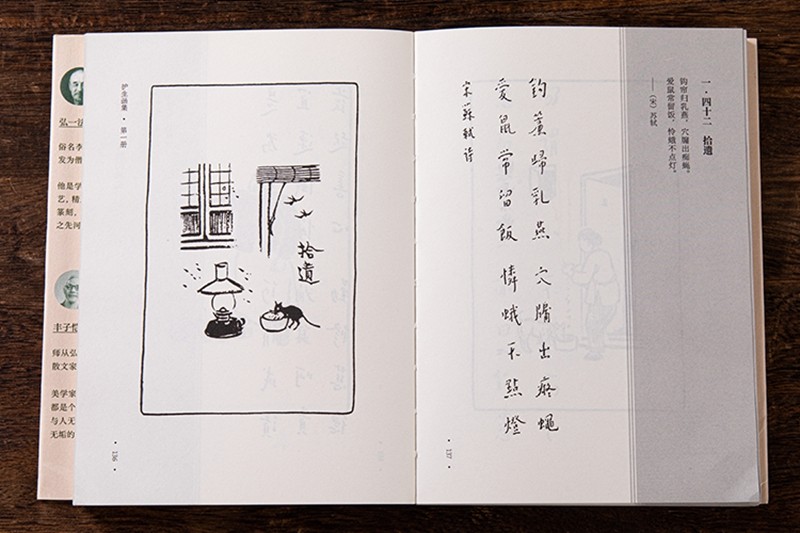 弘一法
俗名李
发为僧
他是学
艺，精
篆刻，
之先河
丰子恺
师从弘
散文家
美学家
都是个
与人无
无垢的
护生画集 · 第一册
拾遺
· 136 ·
一·四十二 拾遗
钩帘归乳燕，穴牖出痴蝇。
爱鼠常留饭，怜蛾不点灯。
——（宋）苏轼
鈎簾歸乳燕 穴牖出痴蠅
愛鼠常留飯 憐蛾不點燈
宋蘇軾詩
137 ·